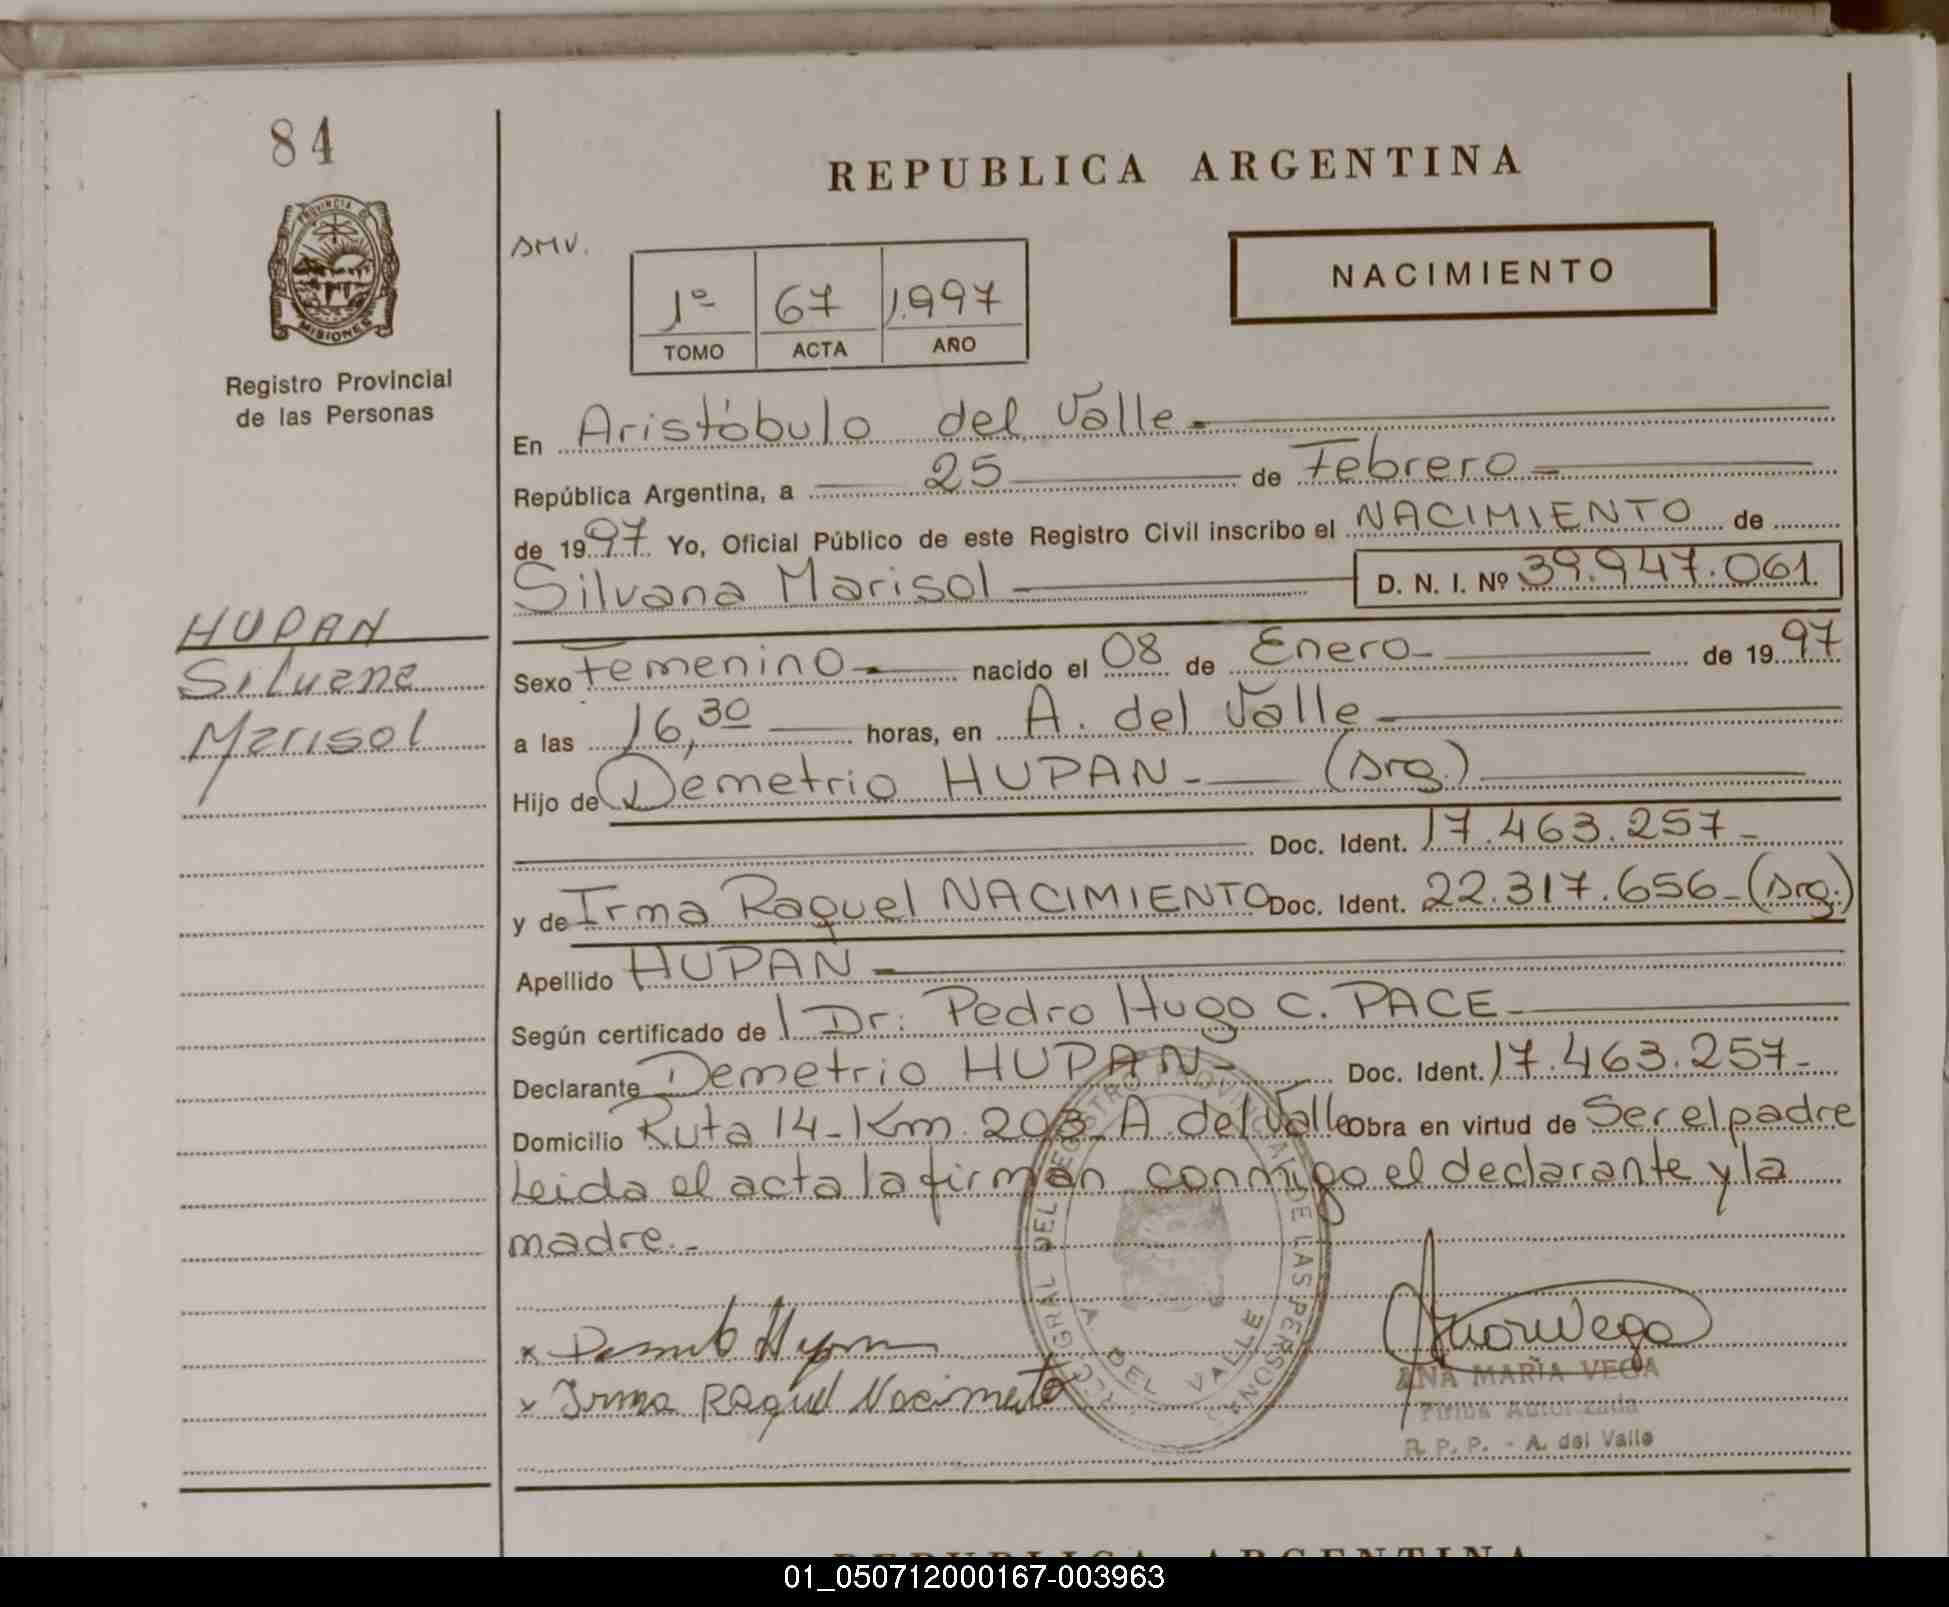 84
REPUBLICA ARGENTINA
PROVINCIA DE
MISIONES
Registro Provincial
de las Personas
SMV.
1º 67 1.997
TOMO ACTA AÑO
NACIMIENTO
En Aristóbulo del Valle.
República Argentina, a 25 de Febrero
de 1997 Yo, Oficial Público de este Registro Civil inscribo el NACIMIENTO de
Silvana Marisol D. N. I. Nº 39.947.061
HUPAN
Silvana
Marisol
Sexo Femenino nacido el 08 de Enero de 1997
a las 16,30 horas, en A. del Valle
Hijo de Demetrio HUPAN (Arg.)
Doc. Ident. 17.463.257
y de Irma Raquel NACIMIENTO Doc. Ident. 22.317.656 (Arg.)
Apellido HUPAN
Según certificado de Dr. Pedro Hugo C. PACE
Declarante Demetrio HUPAN Doc. Ident. 17.463.257
Domicilio Ruta 14 - Km. 203 A. del Valle Obra en virtud de Ser el padre
Leida el acta la firman conmigo el declarante y la
madre.
Irma Raquel Nacimiento
ANA MARIA VEGA
Firma Autorizada
R. P. P. - A. del Valle
DEL REGISTRO PROVINCIAL DE LAS PERSONAS
A. DEL VALLE
REPUBLICA ARGENTINA
01_050712000167-003963